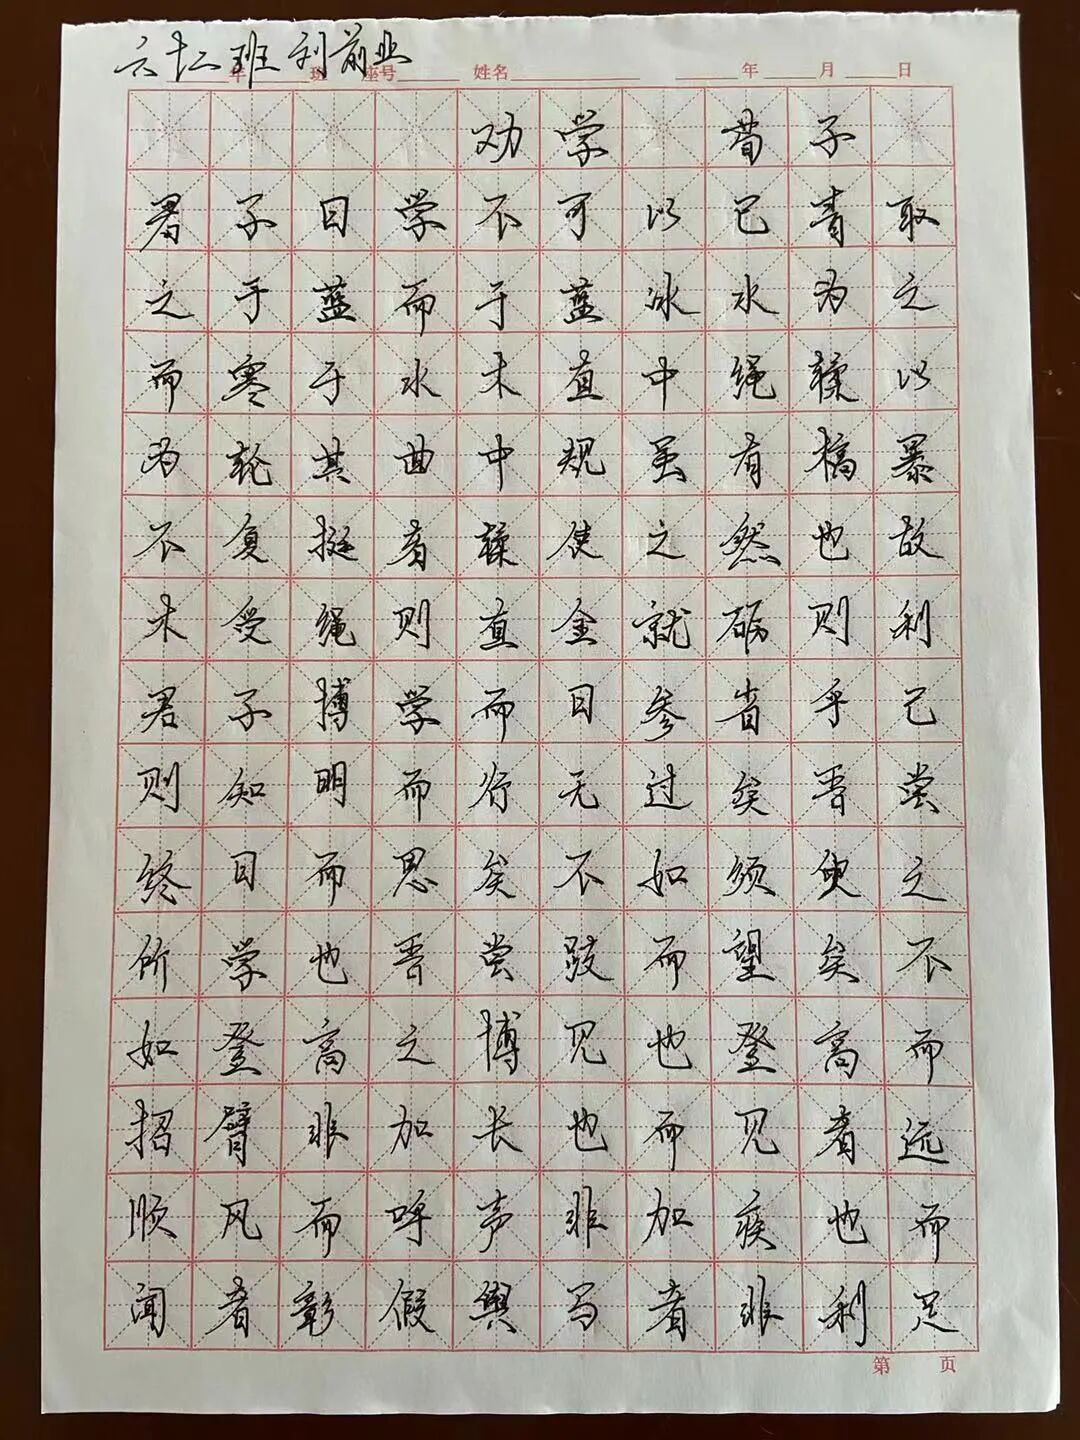 六十二班 刘前业
年 班 座号 姓名 年 月 日
劝学 荀子
君子曰学不可以已青取
之于蓝而于蓝冰水为之
而寒于水木直中绳輮以
为轮其曲中规虽有槁暴
不复挺者輮使之然也故
木受绳则直金就砺则利
君子博学而日参省乎己
则知明而行无过矣吾尝
终日而思矣不如须臾之
所学也吾尝跂而望矣不
如登高之博见也登高而
招臂非加长也而见者远
顺风而呼声非加疾也而
闻者彰假舆马者非利足
第 页